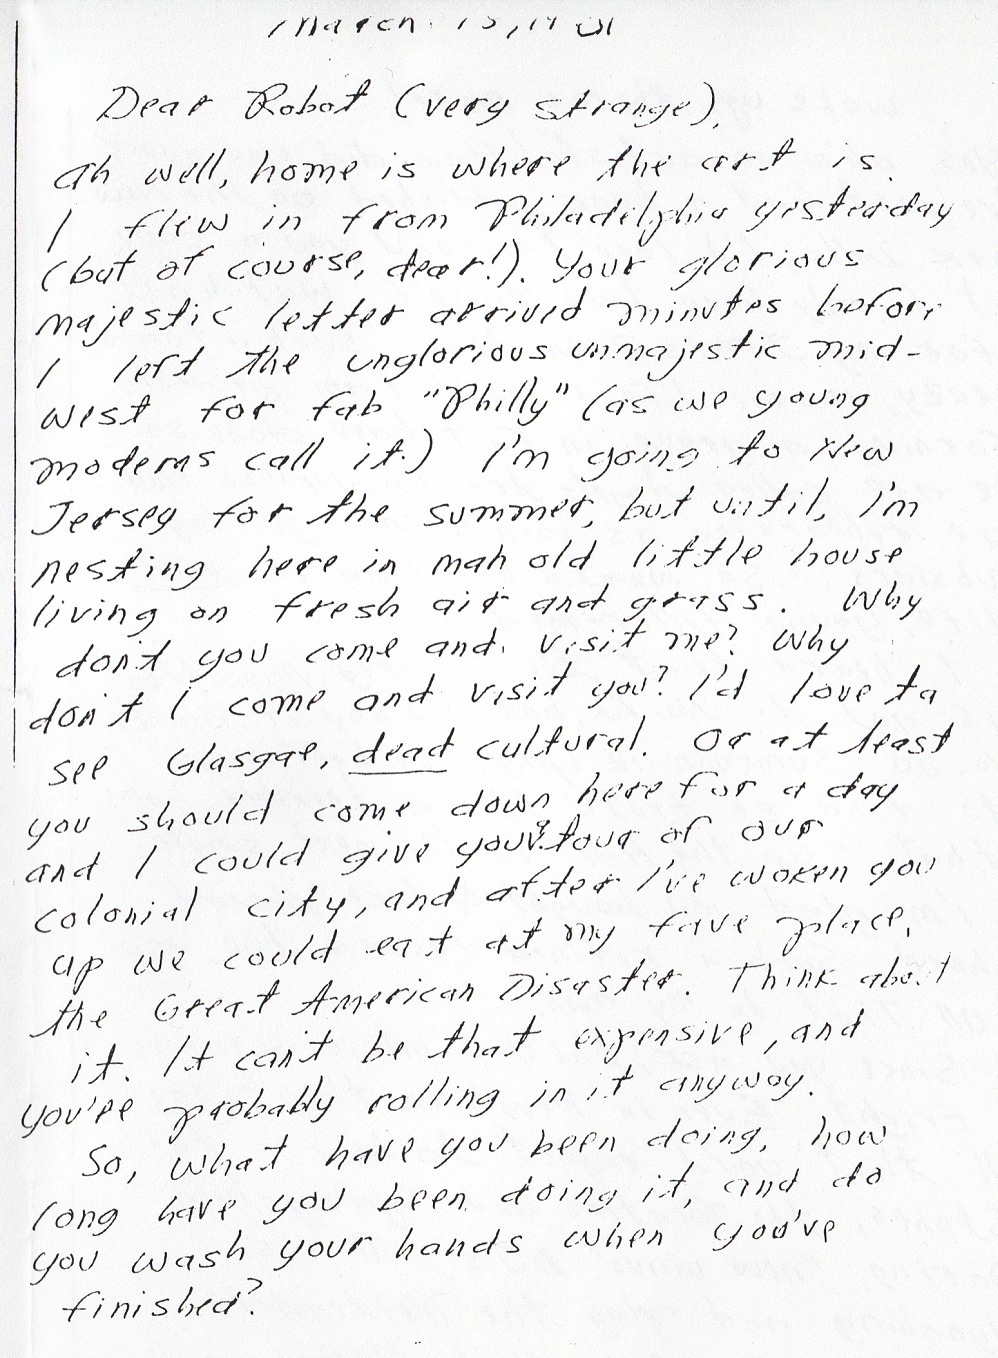 March 15, 19
Dear Robot (very strange),
ah well, home is where the art is.
I flew in from Philadelphia yesterday
(but of course, dear!). Your glorious
majestic letter arrived minutes before
I left the unglorious unmajestic mid-
west for fab "Philly" (as we young
moderns call it.) I'm going to New
Jersey for the summer, but until, I'm
nesting here in mah old little house
living on fresh air and grass. Why
don't you come and visit me? Why
don't I come and visit you? I'd love ta
see Glasgae, dead cultural. Or at least
you should come down here for a day
and I could give you a tour of our
colonial city, and after I've woken you
up we could eat at my fave place,
the Great American Disaster. Think about
it. It can't be that expensive, and
you're probably rolling in it anyway.
So, what have you been doing, how
long have you been doing it, and do
you wash your hands when you've
finished?